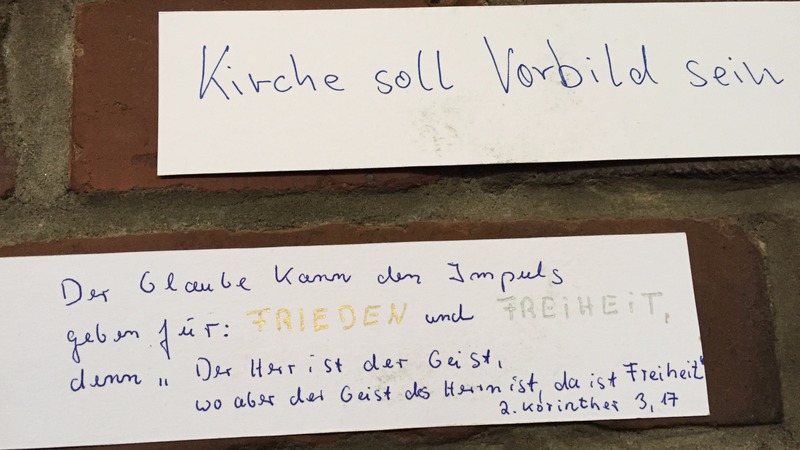 Kirche soll Vorbild sein
Der Glaube kann den Impuls
geben für: FRIEDEN und FREiHEiT,
denn „ Der Herr ist der Geist,
wo aber der Geist des Herrn ist, da ist Freiheit"
2. Korinther 3, 17